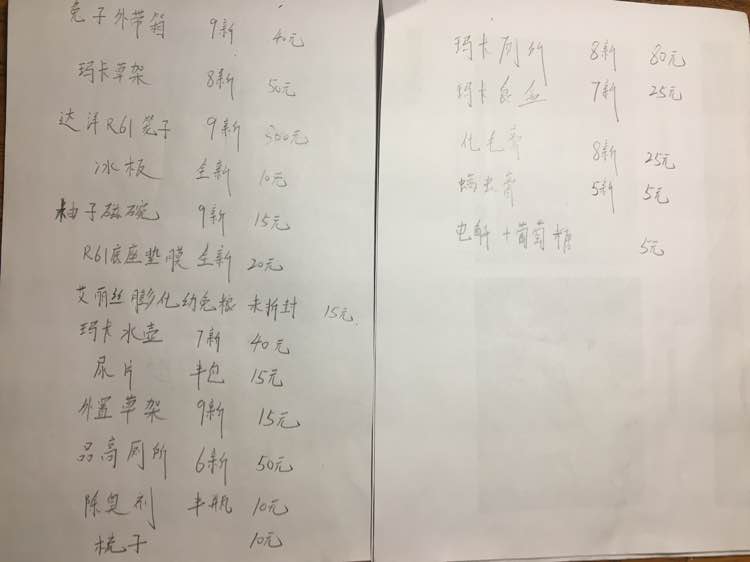 兔子外带箱 9新 40元
玛卡草架 8新 50元
达洋R61笼子 9新 300元
冰板 全新 10元
柚子磁碗 9新 15元
R61底座垫膜 全新 20元
艾丽丝膨化幼兔粮 未拆封 15元
玛卡水壶 7新 40元
尿片 半包 15元
外置草架 9新 15元
品高厕所 6新 50元
除臭剂 半瓶 10元
梳子 10元
玛卡厕所 8新 80元
玛卡食盆 7新 25元
化毛膏 8新 25元
螨虫膏 5新 5元
电解+葡萄糖 5元